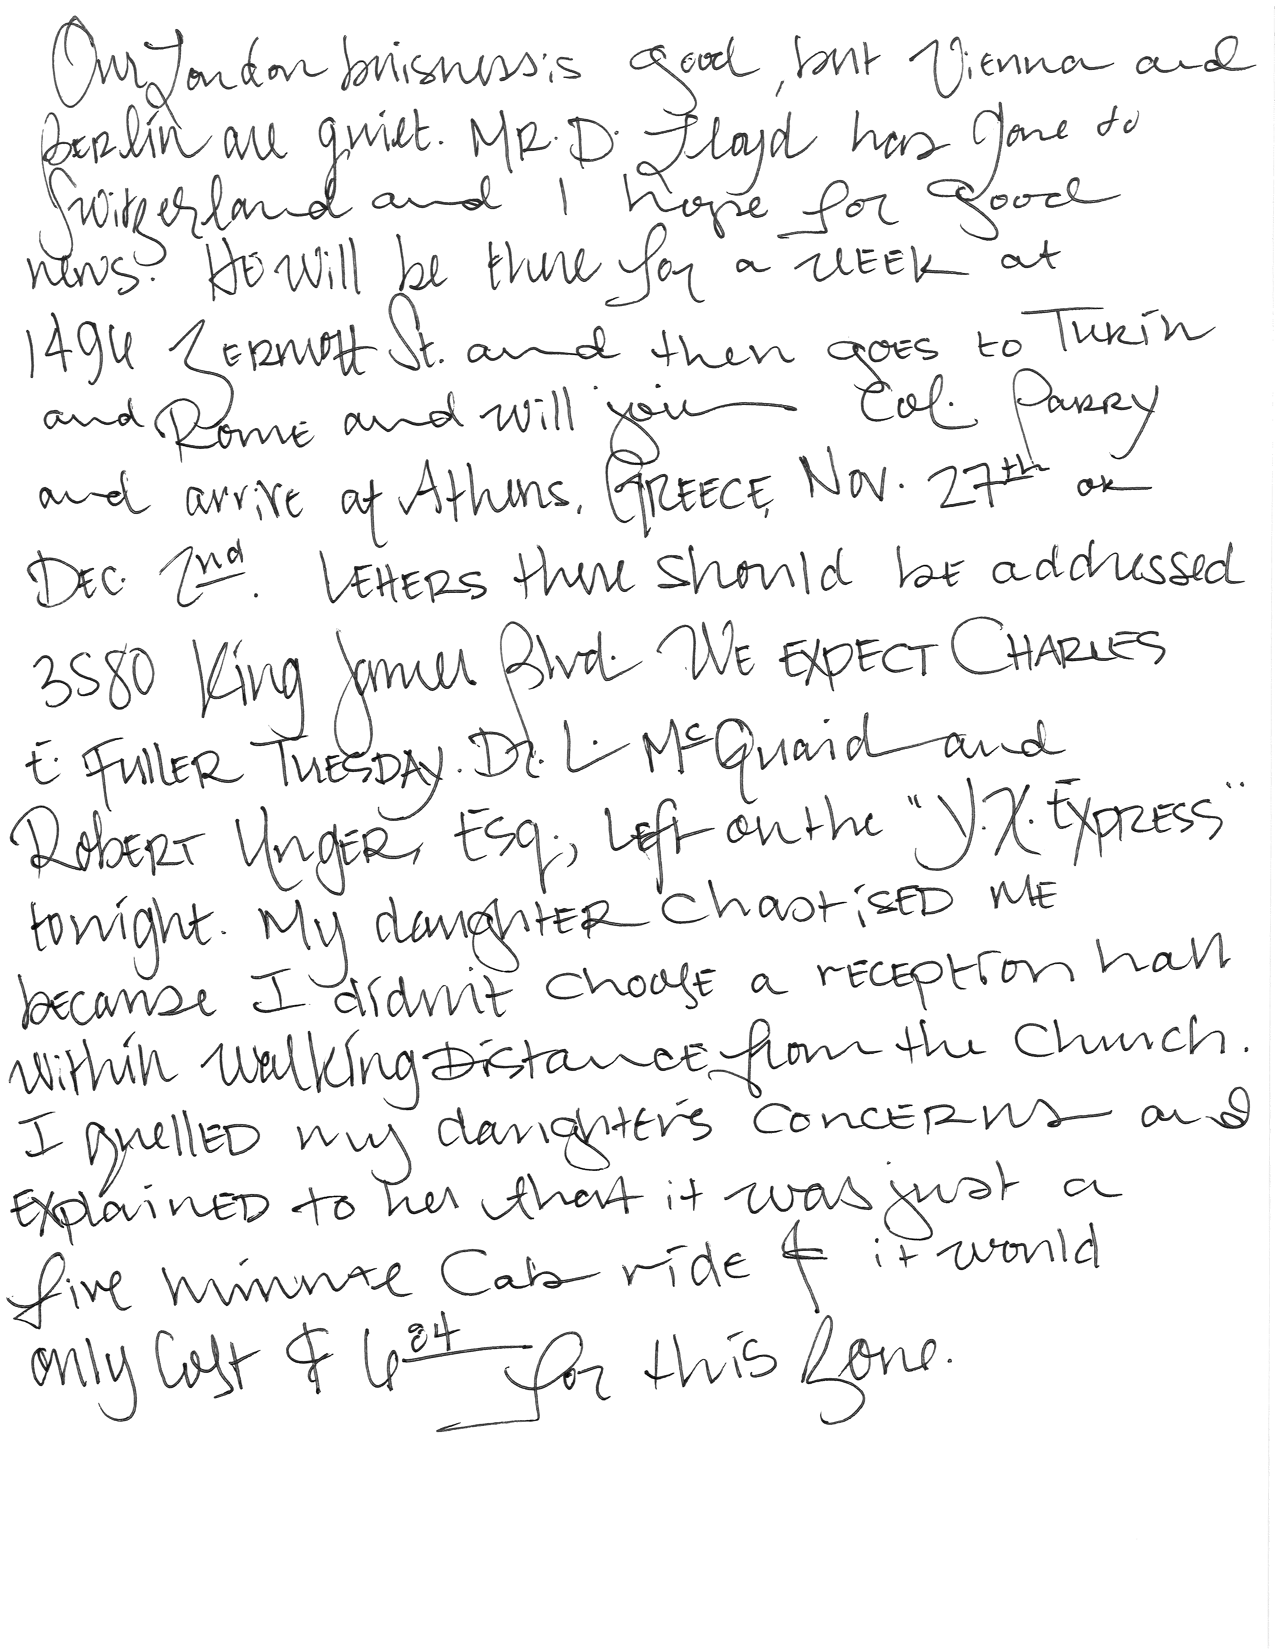 Our London buisness is good, but Vienna and
Berlin are quiet. MR. D. Floyd has gone to
Switzerland and I hope for good
news. He will be there for a week at
1496 Zermott St. and then goes to Turin
and Rome and will join Col. Parry
and arrive at Athens, Greece, Nov. 27th or
Dec. 2nd. Letters there should be addressed
3580 King James Blvd. We expect Charles
E. Fuller Tuesday. Dr. L. McQuaid and
Robert Unger, Esq., left on the "Y.X. Express"
tonight. My daughter chastised me
because I didn't choose a reception hall
within walking distance from the church.
I quelled my daughter's concerns and
explained to her that it was just a
five minute cab ride & it would
only cost $6.84 for this zone.